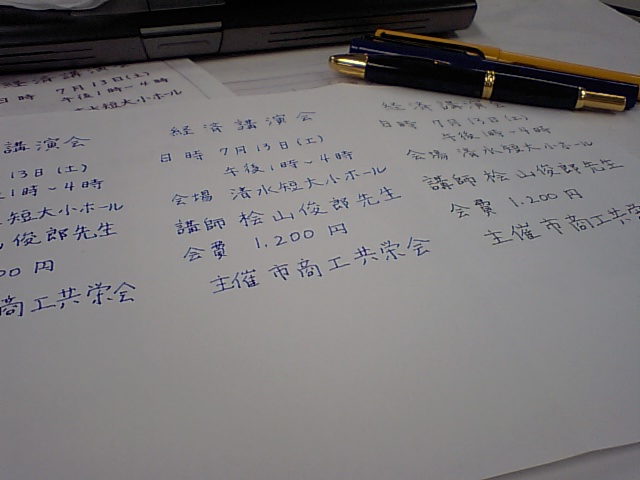 経済講演会
日時 7月13日(土)
午後1時～4時
短大小ホール
講演会
13日(土)
1時～4時
短大小ホール
俊郎先生
00円
商工共栄会
経済講演会
日時 7月13日(土)
午後1時～4時
会場 清水短大小ホール
講師 桧山俊郎先生
会費 1,200円
主催 市商工共栄会
経済講演会
日時 7月13日(土)
午後1時～4時
会場 清水短大小ホール
講師 桧山俊郎先生
会費 1,200円
主催 市商工共栄